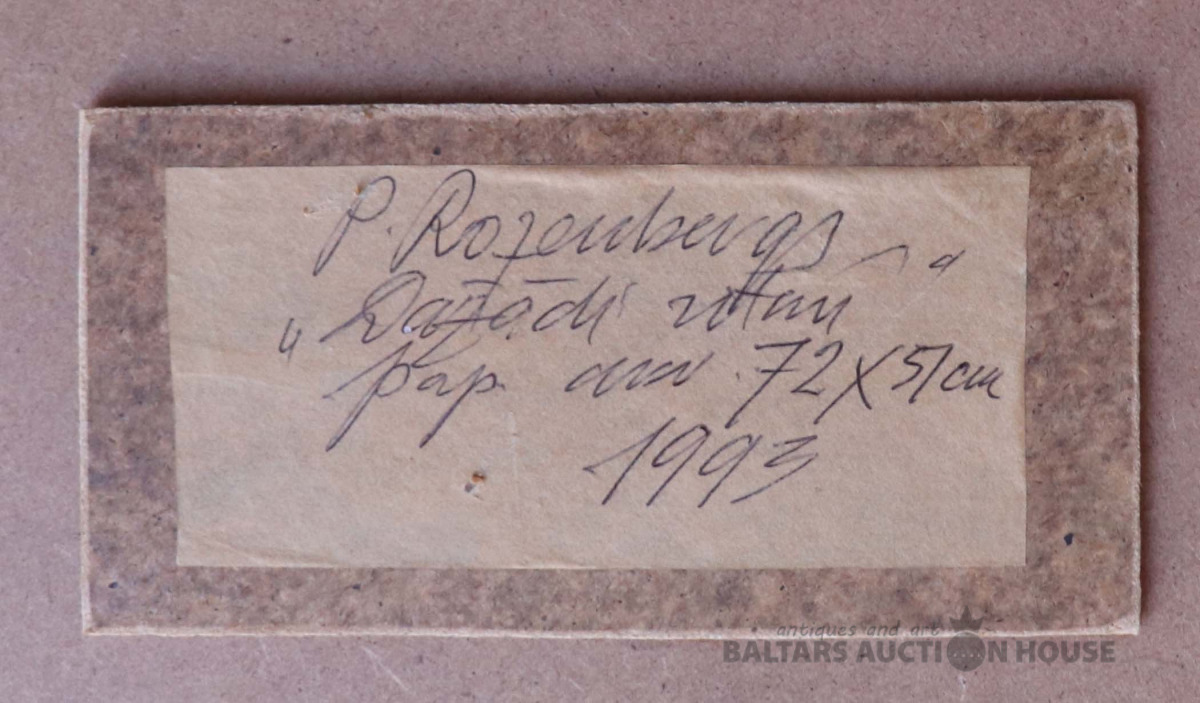 P. Rozenbergs
„Dažādi ritmi“
pap. akv. 72x51cm
1993
antiques and art
BALTARS AUCTION HOUSE